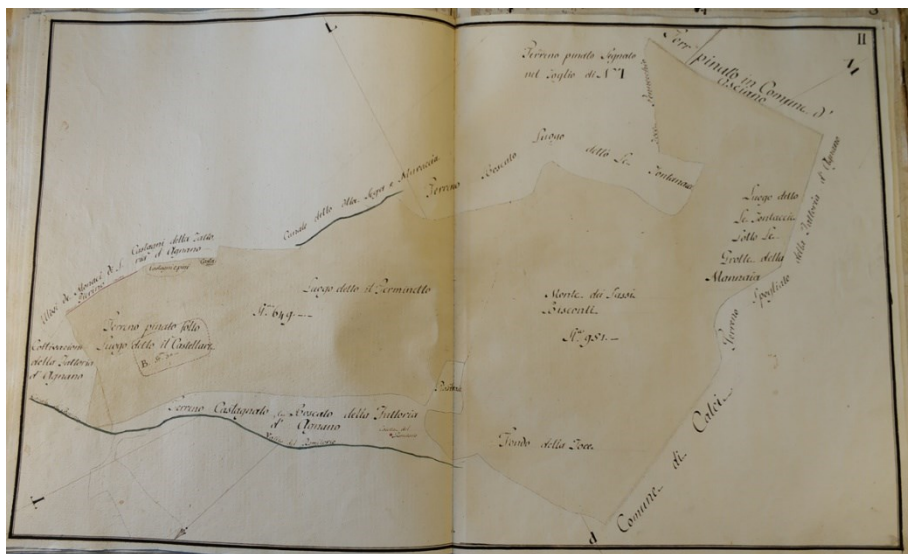 II
L
M
Terreno pinato Segnato
nel Foglio di N.º I
Terr. pinato in Comune d'
Asciano
Terreno Boscato Luogo
detto Le Fontanac
Canale detto
e Maruccia
Castagni della Fatto
ria d' Agnano
Luogo detto
Le Fontaccie
Sotto Le
Grotte della
Mannaia
Terreno Spogliato della Fattoria d' Agnano
Luogo detto il Terminetto
N.º 649.
Monte dei Sassi
Biscoati
N.º 951.
Terreno pinato sotto
Luogo detto il Castellare
B.
Coltivazioni
della Fattoria
d' Agnano
Terreno Castagnato e Boscato della Fattoria
d' Agnano
Fondo della Foce
Comune di Calci
T